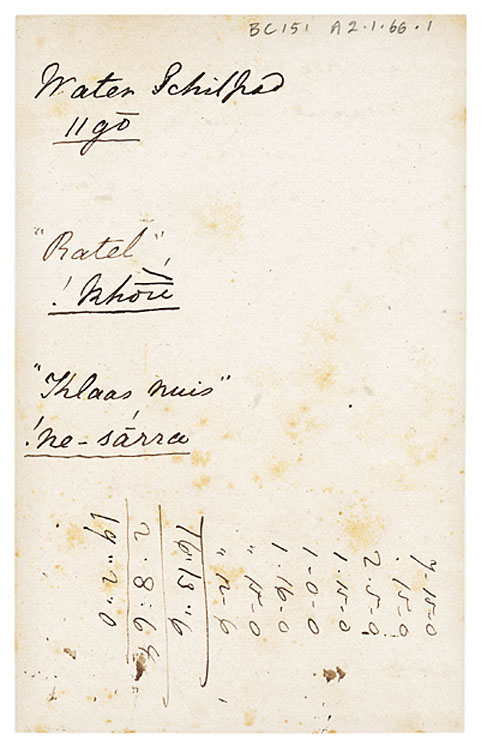 BC151 A2.1.66.1
Water Schilpad
||gō
"Ratel"
!khōrè
"Klaas nuis"
!ne-sárra
7-15-0
. 15-0
2. 5-0
1. 15-0
1-0-0
1. 16-0
" 15-0
" 12-6
16"13"6
2.8:6
19"2"0